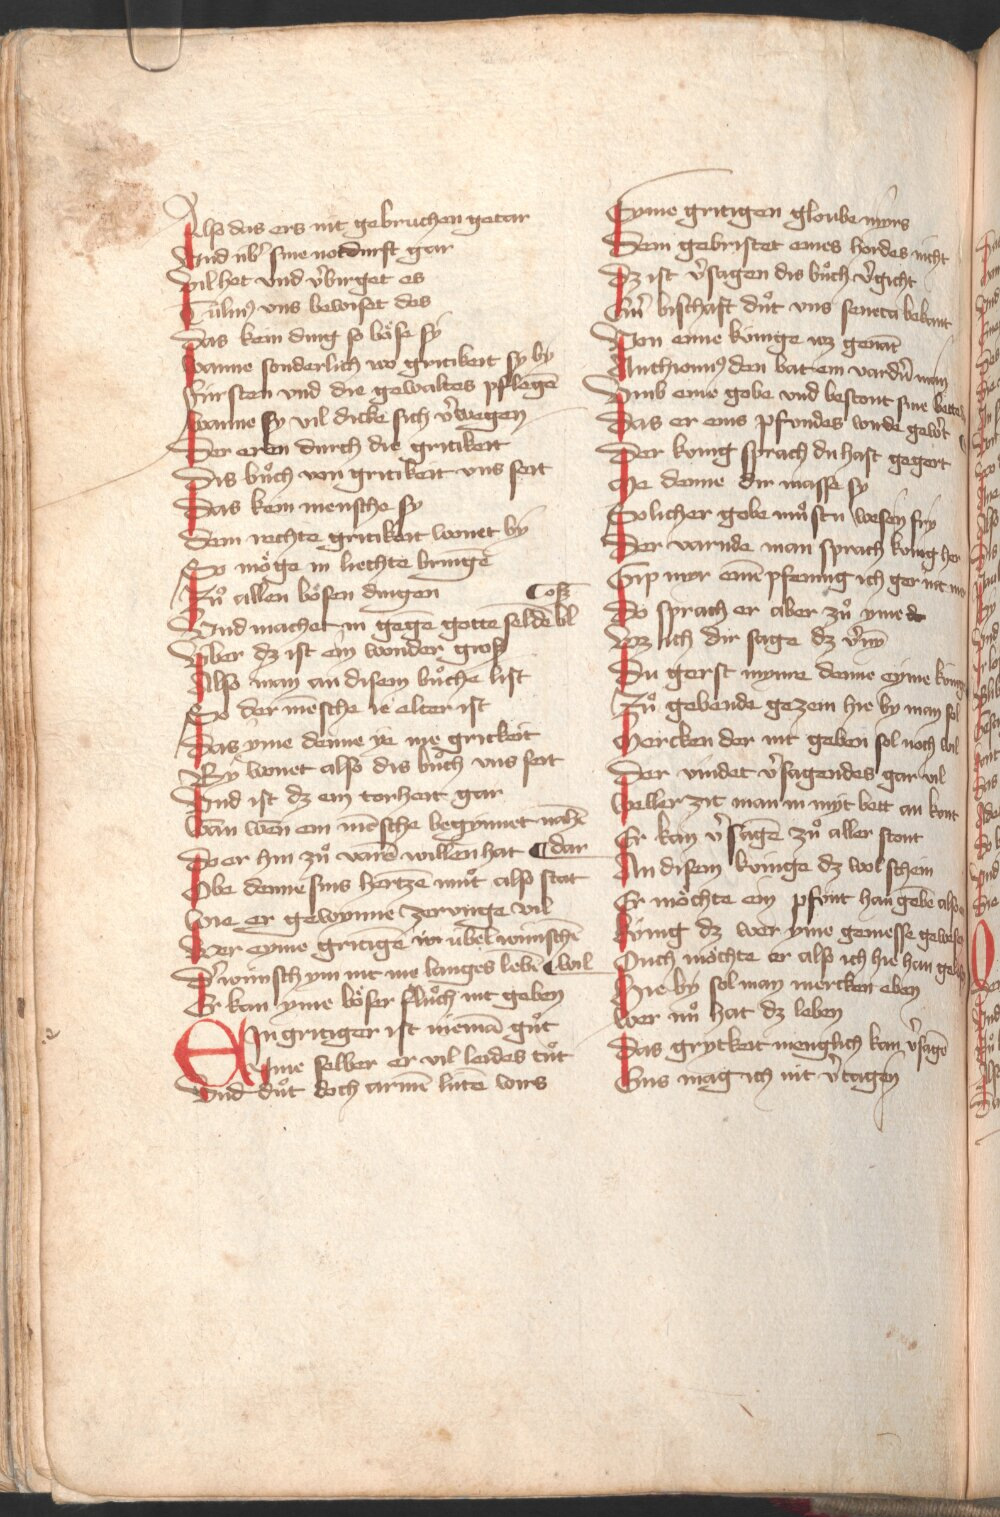 Also das ers nit gebruchen getar
Vnd vb̾ sine notdurft gar
Vil het vnd v̾birget es
Tulius vns bewiset des
Das kein ding so bo̊se sy
Wanne sonderlich wo gritikeit sy by
Fúrsten vnd die gewaltes pflegē
Wanne sy vil dicke sich v̾wegen
Der eren durch die gritikeit
Dis bůch von gritikeit vns seit
Das kein mensche sy
Dem rechte gritikeit wonet by
So mo̊ge in liechte bringē
Zů allen bo̊sen dingen
Vnd machet in gegē gotte seldē bloß
Vber dz ist ein wonder groß
Also man an disem bůche list
So der mēsche ie elter ist
Das yme denne ye me gritkeit
By wonet also dis bůch vns seit
Vnd ist dz ein torheit gar
Wan wen̄ ein mēsche begynnet nahē dar
Do er hin zů varē willen hat
Obe denne sins hertzē můt also stat
Wie er gewynne zervinge vil
Wer eyme gritigē úbel wúnschē wil
D̾ wúnsch ym nit me langes lebē
Er kan yme bo̊ser flůch nit geben
EIn gritiger ist niemā gůt
Yme selber er vil leides tůt
Vnd důt doch armē lútē wirs
Eyme gritigen gloube mirs
Dem gebristet eines hordes nicht
Dz ist v̾sagen dis bůch v̾gicht
Ein̄ bischaft důt vns seneca bekant
Von eime kónige wz genāt
Anthionius den bat ein varnd̾ man
Vmb eine gobe vnd bestont sine bette
Das er eins pfundes wurde gew̾t
Der kónig sprach du hast gegert
Me denne dir masse sy
Solicher gobe můstu wesen fry
Der varnde man sprach kónig her
Gip mir einē pfennig ich ger nit me
Do sprach er aber zů yme
Wz ich dir sage dz v̾nȳ
Du gerst mynre denne eyme kónige
Zů gebende gezem hie by man sol
Mercken der nit geben sol noch wil
Der vindet v̾sagendes gar vil
Weller zit man in myt bett an komt
Er kan v̾sagē zů aller stont
An disem kónige dz wol schein
Er mo̊chte ein pfunt han gebē
Kúnig dz wer yme gemesse gewesen
Ouch mo̊chte er also ich hie han gelesen
Hie by sol man mercken eben
Wer nů hat dz leben
Das grytkeit menglich kan v̾sagē
Eins mag ich nit v̾tagen